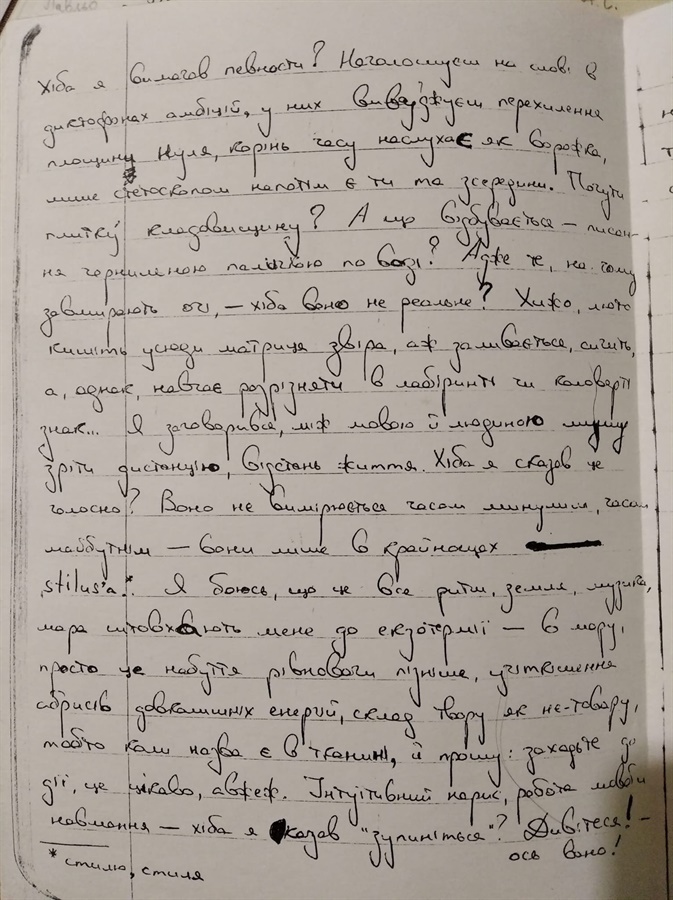 Павло
Хіба я вимагав певности? Наголошуєш на слові в
диктофонах амбіцій, у них виваджуєш перехилення
площини нуля, корінь часу наслухає як ворожка,
лише стетоскопом напотім є ти та зсередини. Почути
плитку кладовищину? А що відбувається – писан-
ня чорнильною паличкою по воді? Адже те, на чому
завмирають очі, – хіба воно не реальне? Хижо, люто
кишить усюди матриця звіра, аж заливається, сичить,
а, однак, навчає розрізняти в лабіринті чи коловерті
знак... Я заговорився, між мовою й людиною мушу
зріти дистанцію, відстань життя. Хіба я сказав це
голосно? Воно не вимірюється часом минулим, часом
майбутнім – вони лише в крайнощах
stilus'а.* Я боюсь, що це все ритм, земля, музика,
мара штовхають мене до екзотермії – в мору,
просто це набуття рівноваги пізніше, учіткішення
абрисів довколишніх енергій, склад твору як не-товару,
тобто коли назва є в тканині, й прошу: заходьте до
дії, це цікаво, авжеж. Інтуїтивний нарис, робота мовби
навмання – хіба я сказав "зупиніться"? Дивітеся! –
ось воно!
* стилю, стиля